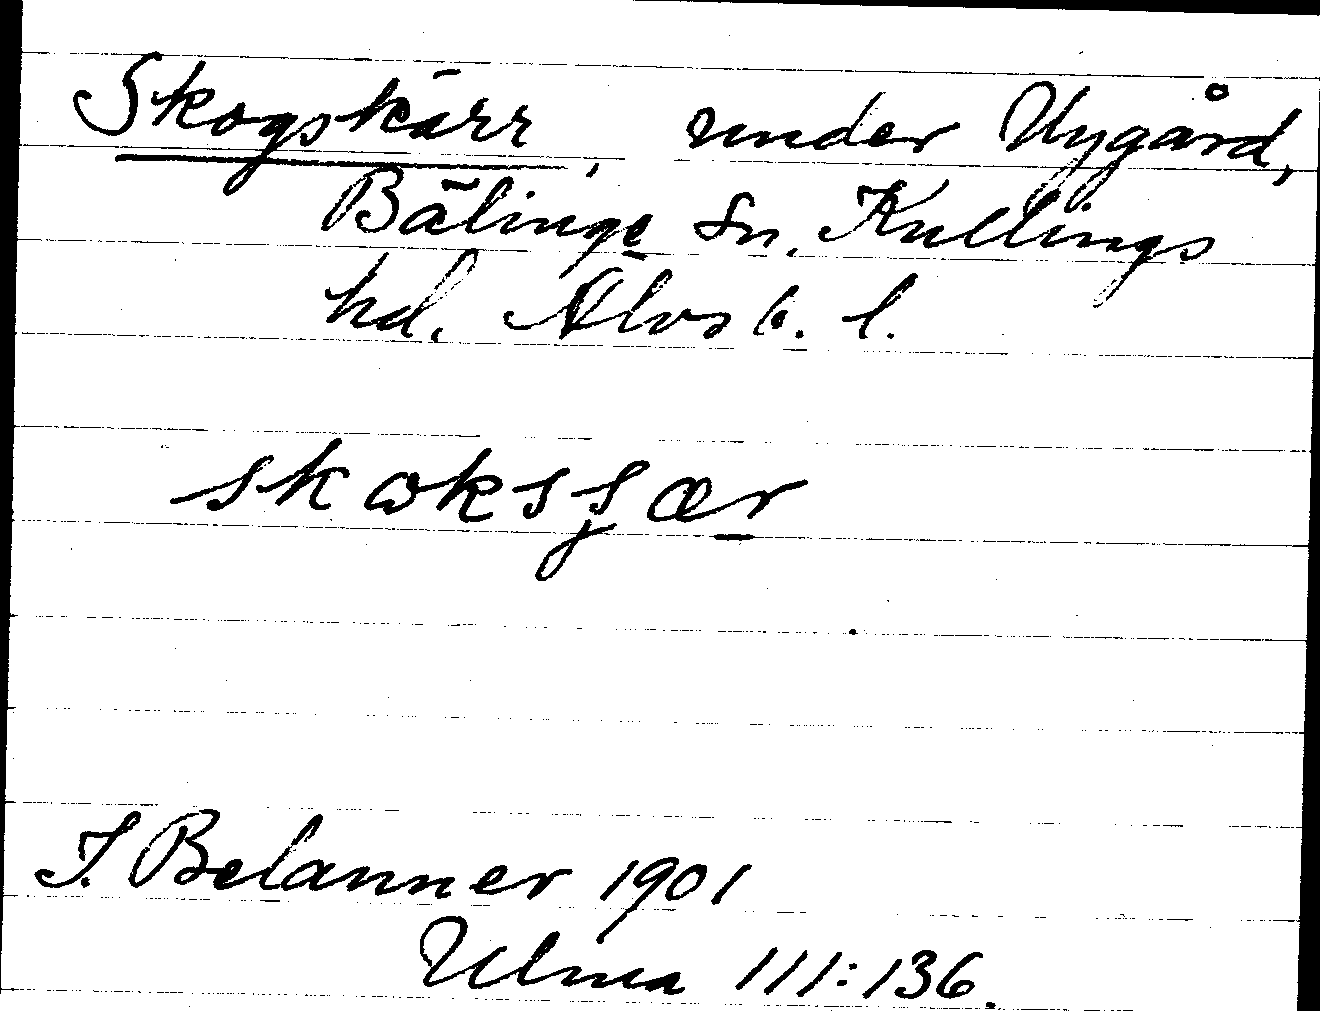 Skogskärr, under Nygård,
Bälinge sn. Kullings
hd. Älvsb. l.
skoksʂær
J. Belanner 1901
Ulma 111:136.